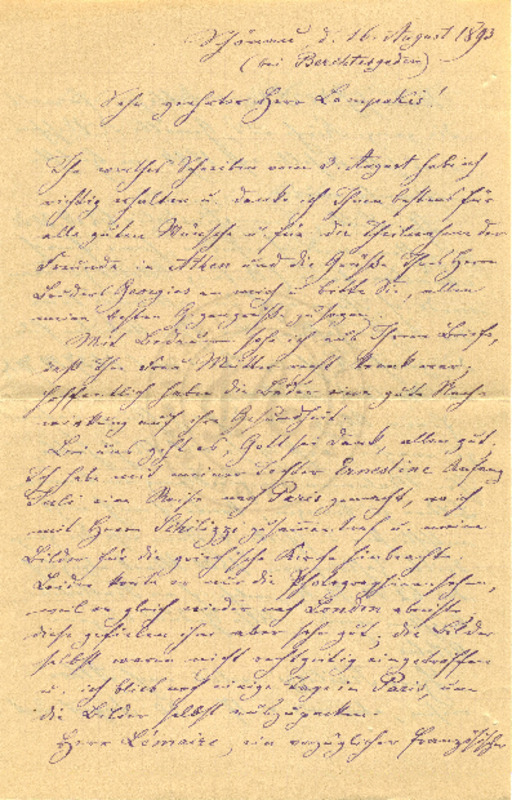 Schönau, d. 16. August 1893
(bei Berchtesgaden)
Sehr geehrter Herr Lampakis!
Ihr werthes Schreiben vom 3. August habe ich
richtig erhalten u. danke ich Ihnen bestens für
alle guten Wünsche u. für die Theilnahme der
Freunde in Athen und die Grüße Ihres Herrn
Bruders Georgios an mich u. bitte Sie, allen
meine besten Gegengrüße zu sagen.
Mit Bedauern sehe ich aus Ihrem Briefe,
daß Ihre Frau Mutter recht krank war,
hoffentlich haben die Bäder eine gute Nach-
wirkung auf ihre Gesundheit.
Bei uns geht es, Gott sei Dank, allen gut.
Ich habe mit meiner Tochter Ernestine Anfang
Juli eine Reise nach Paris gemacht, wo ich
mit Herrn Skilizzi zusammentraf u. meine
Bilder für die griechische Kirche hinbrachte.
Leider konnte er nur die Photographien sehen,
weil er gleich wieder nach London abreiste
diese gefielen ihm aber sehr gut; die Bilder
selbst waren nicht rechtzeitig eingetroffen
u. ich blieb noch einige Tage in Paris, um
die Bilder selbst auszupacken.
Herr Lemaire, ein vorzüglicher französischer